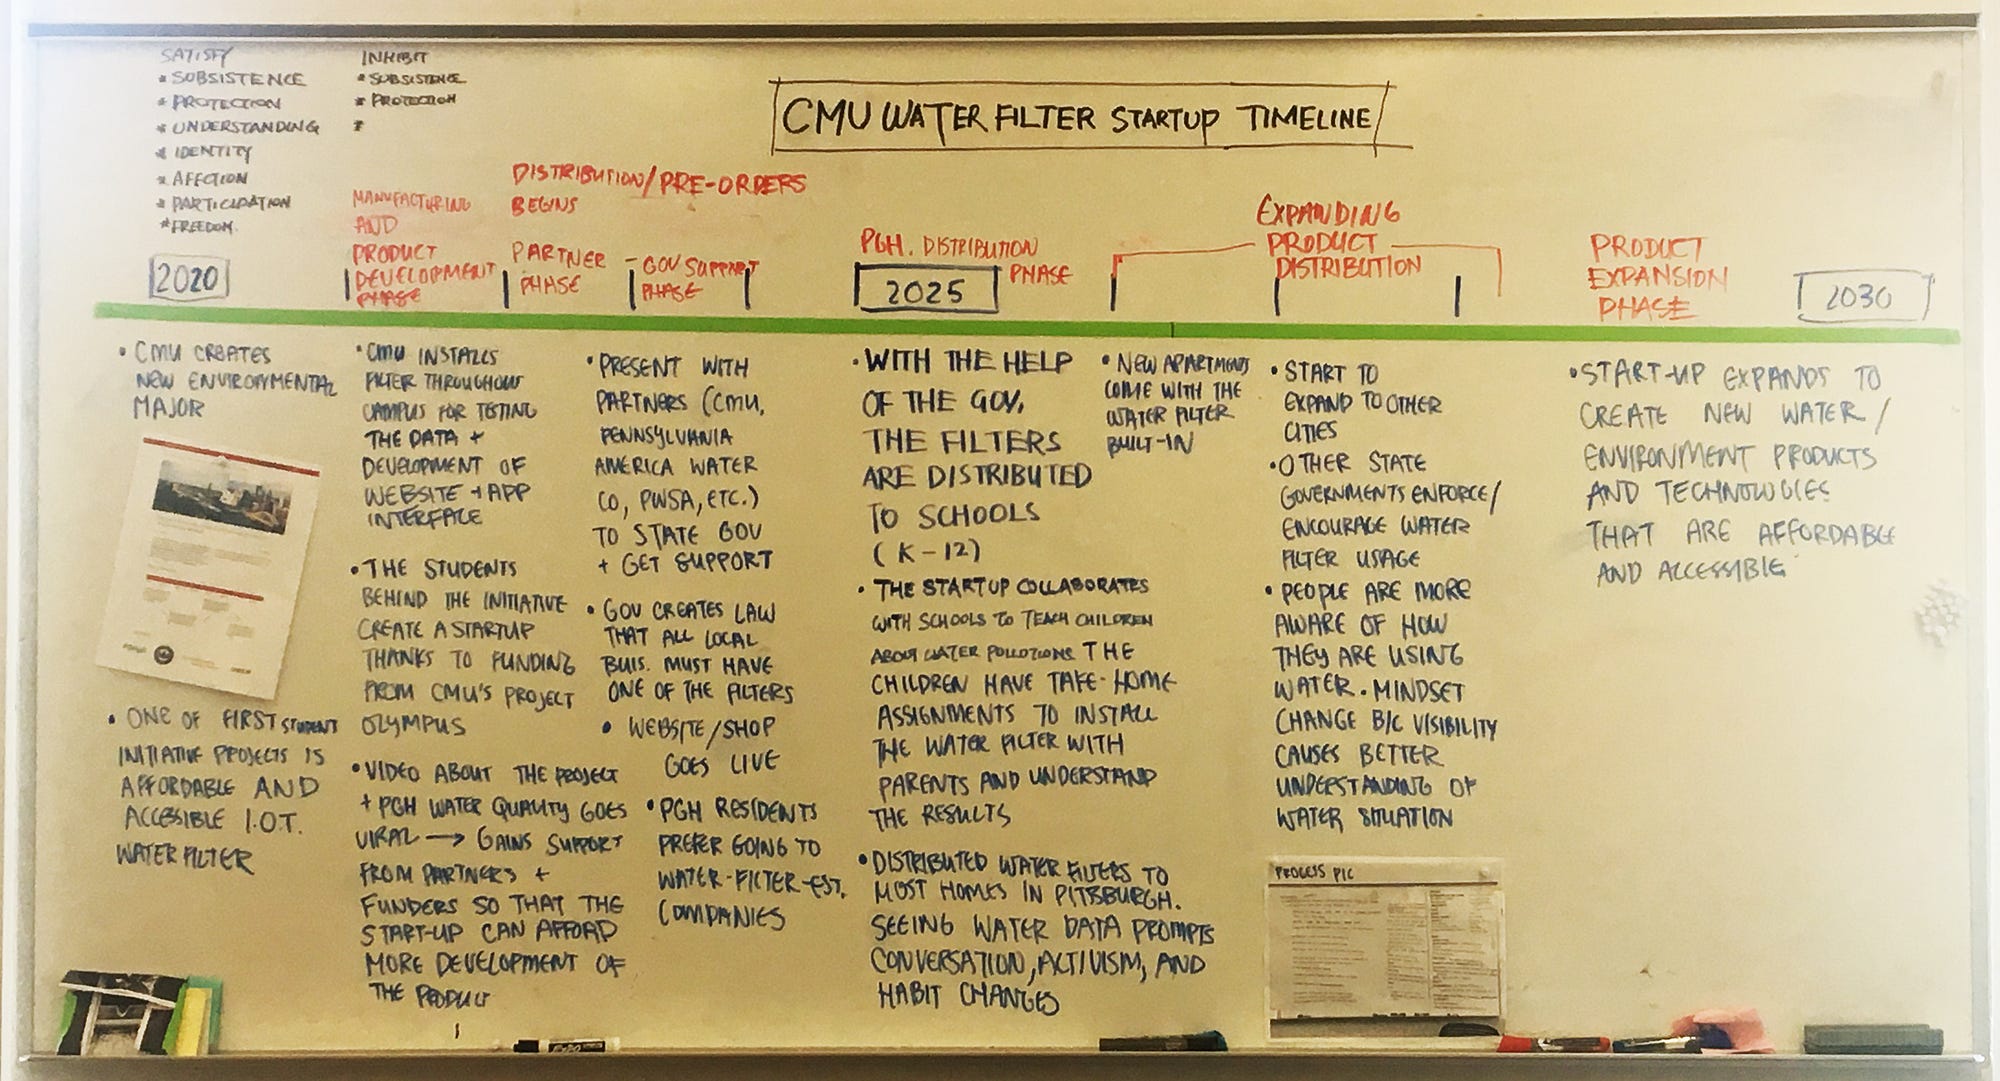 SATISFY
* SUBSISTENCE
* PROTECTION
* UNDERSTANDING
* IDENTITY
* AFECTION
* PARTICIPATION
* FREEDOM.
INHIBIT
* SUBSISTENCE
* PROTECTION
*
CMU WATER FILTER STARTUP TIMELINE
2020
MANUFACTURING
AND
PRODUCT
DEVELOPMENT
PHASE
DISTRIBUTION/PRE-ORDERS
BEGINS
PARTNER
PHASE
- GOV SUPPORT
PHASE
PGH. DISTRIBUTION
PHASE
2025
EXPANDING
PRODUCT
DISTRIBUTION
PRODUCT
EXPANSION
PHASE
2030
• CMU CREATES
NEW ENVIRONMENTAL
MAJOR
• ONE OF FIRST STUDENT
INITIATIVE PROJECTS IS
AFFORDABLE AND
ACCESSIBLE I.O.T.
WATER FILTER
• CMU INSTALLS
FILTER THROUGHOUT
CAMPUS FOR TESTING
THE DATA +
DEVELOPMENT OF
WEBSITE + APP
INTERFACE
• THE STUDENTS
BEHIND THE INITIATIVE
CREATE A STARTUP
THANKS TO FUNDING
FROM CMU'S PROJECT
OLYMPUS
• VIDEO ABOUT THE PROJECT
+ PGH WATER QUALITY GOES
VIRAL → GAINS SUPPORT
FROM PARTNERS +
FUNDERS SO THAT THE
START-UP CAN AFFORD
MORE DEVELOPMENT OF
THE PRODUCT
• PRESENT WITH
PARTNERS (CMU,
PENNSYLVANIA
AMERICA WATER
CO, PWSA, ETC.)
TO STATE GOV
+ GET SUPPORT
• GOV CREATES LAW
THAT ALL LOCAL
BUIS. MUST HAVE
ONE OF THE FILTERS
• WEBSITE/SHOP
GOES LIVE
• PGH RESIDENTS
PREFER GOING TO
WATER-FILTER-EST.
COMPANIES
• WITH THE HELP
OF THE GOV,
THE FILTERS
ARE DISTRIBUTED
TO SCHOOLS
(K-12)
• THE STARTUP COLLABORATES
WITH SCHOOLS TO TEACH CHILDREN
ABOUT WATER POLLUTIONS THE
CHILDREN HAVE TAKE-HOME
ASSIGNMENTS TO INSTALL
THE WATER FILTER WITH
PARENTS AND UNDERSTAND
THE RESULTS
• DISTRIBUTED WATER FILTERS TO
MOST HOMES IN PITTSBURGH.
SEEING WATER DATA PROMPTS
CONVERSATION, ACTIVISM, AND
HABIT CHANGES
• NEW APARTMENTS
COME WITH THE
WATER FILTER
BUILT-IN
• START TO
EXPAND TO OTHER
CITIES
• OTHER STATE
GOVERNMENTS ENFORCE/
ENCOURAGE WATER
FILTER USAGE
• PEOPLE ARE MORE
AWARE OF HOW
THEY ARE USING
WATER. MINDSET
CHANGE B/C VISIBILITY
CAUSES BETTER
UNDERSTANDING OF
WATER SITUATION
PROCESS PIC
• START-UP EXPANDS TO
CREATE NEW WATER/
ENVIRONMENT PRODUCTS
AND TECHNOLOGIES
THAT ARE AFFORDABLE
AND ACCESSIBLE
EXPO